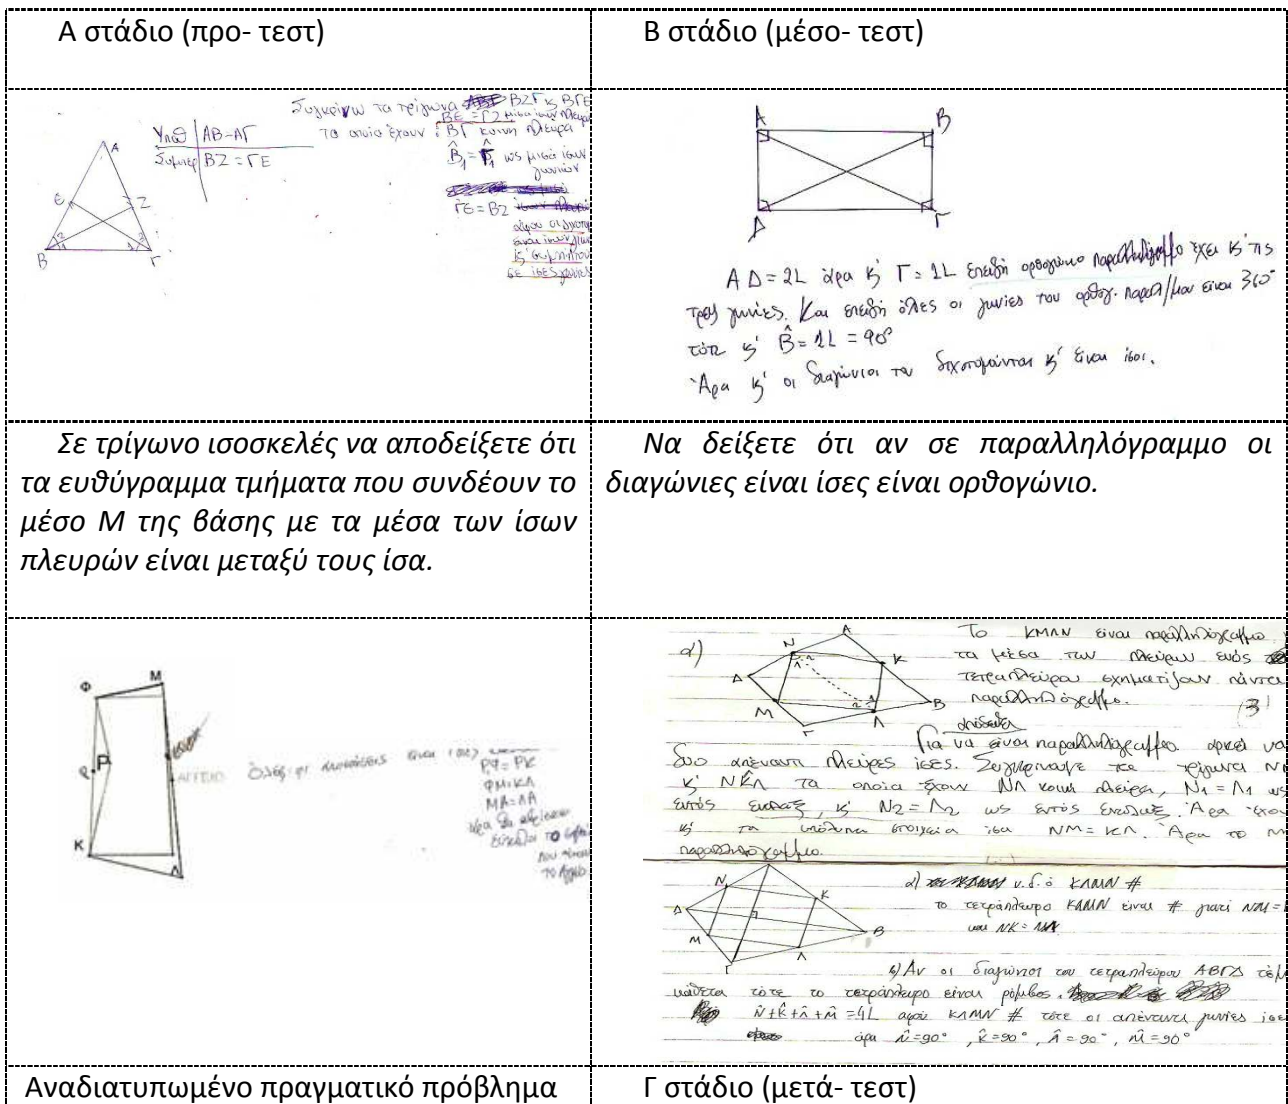 Α στάδιο (προ- τεστ)
Β στάδιο (μέσο- τεστ)
Συγκρίνω τα τρίγωνα ΒΖΓ κ ΒΓΕ
τα οποία έχουν: ΒΓ κοινή πλευρά
Υποθ ΑΒ=ΑΓ
Συμπερ ΒΖ=ΓΕ
ως μισά ίσων
γωνιών
ΓΕ=ΒΖ
Α
Ε
Ζ
2
1
1
2
Β
Γ
Α
Β
Δ
Γ
Α Δ=2L άρα κ' Γ=1L επειδή ορθογώνιο παραλληλόγραμμο έχει κ' τις
τρεις γωνίες. Και επειδή όλες οι γωνίες του ορθογ. παραλ/μου είναι 360°
τότε κ' Β̂=1L=90°
Άρα κ' οι διαγώνιοι του διχοτομούνται κ' είναι ίσοι.
Σε τρίγωνο ισοσκελές να αποδείξετε ότι
τα ευθύγραμμα τμήματα που συνδέουν το
μέσο Μ της βάσης με τα μέσα των ίσων
πλευρών είναι μεταξύ τους ίσα.
Να δείξετε ότι αν σε παραλληλόγραμμο οι
διαγώνιες είναι ίσες είναι ορθογώνιο.
Φ
Μ
Ρ
Κ
Λ
ΡΦ=ΡΚ
ΦΜ=ΚΛ
ΜΑ=ΛΑ
α)
Α
Ν
Κ
Δ
Μ
Β
Λ
Γ
Το ΚΜΛΝ είναι παραλληλόγραμμο.
τα μέσα των πλευρών ενός
τετραπλεύρου σχηματίζουν πάντα
παραλληλόγραμμο.
απόδειξη
Για να είναι παραλληλόγραμμο αρκεί να
δυο απέναντι πλευρές ίσες. Συγκρίνουμε τα τρίγωνα
κ' ΝΚ̂Λ τα οποία έχουν ΝΛ κοινή πλευρά, Ν1=Λ1 ως
εντός εναλλάξ, κ' Ν2=Λ2 ως εντός εναλλάξ. Άρα έχου
κ' τα υπόλοιπα στοιχεία ίσα ΝΜ=ΚΛ. Άρα το
παραλληλόγραμμο.
Ν
Κ
Δ
Μ
Β
Λ
Γ
α) ν.δ.ό ΚΛΜΝ #
το τετράπλευρο ΚΛΜΝ είναι # γιατί ΝΜ=
και ΝΚ=ΜΛ
β) Αν οι διαγώνιοι του τετραπλεύρου ΑΒΓΔ τέμ
κάθετα τότε το τετράπλευρο είναι ρόμβος.
Ν̂+Κ̂+Λ̂+Μ̂=4L αφού ΚΛΜΝ # τότε οι απέναντι γωνίες ίσε
άρα Ν̂=90°, Κ̂=90°, Λ̂=90°, Μ̂=90°
Αναδιατυπωμένο πραγματικό πρόβλημα
Γ στάδιο (μετά- τεστ)